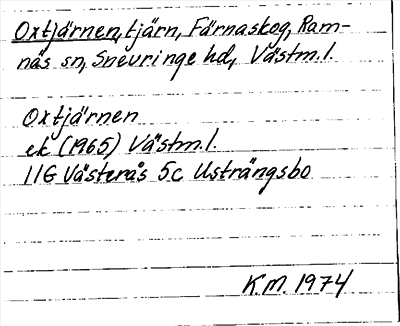 Oxtjärnen, tjärn, Färnaskog, Ram-
näs sn, Snevringe hd, Västm.l.
Oxtjärnen
ek (1965) Västm.l.
11G Västerås 5c Usträngsbo
K.M. 1974